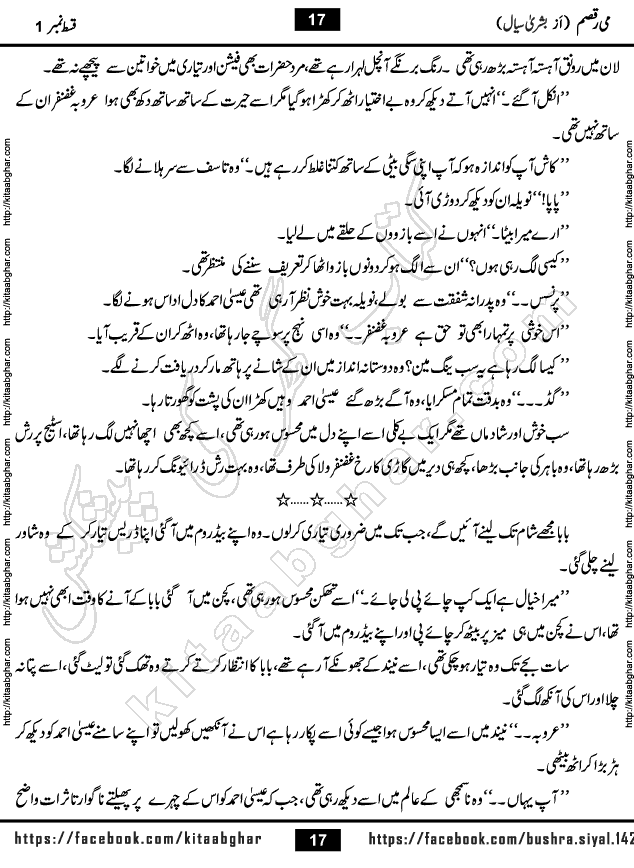 قسط نمبر 1
17
می رقصم (از بشریٰ سیال)
لان میں رونق آہستہ آہستہ بڑھ رہی تھی ۔ رنگ برنگے آنچل لہرا رہے تھے، مرد حضرات بھی فیشن اور تیاری میں خواتین سے پیچھے نہ تھے۔
’’انکل آ گئے ۔‘‘ انہیں آتے دیکھ کر وہ بے اختیار اٹھ کر کھڑا ہو گیا مگر اسے حیرت کے ساتھ ساتھ دکھ بھی ہوا عروبہ غضنفر ان کے
ساتھ نہیں تھی۔
’’کاش آپ کو اندازہ ہو کہ آپ اپنی سگی بیٹی کے ساتھ کتنا غلط کر رہے ہیں ۔‘‘ وہ تاسف سے سر ہلانے لگا۔
’’پاپا!‘‘ نویلہ ان کو دیکھ کر دوڑی آئی۔
’’ارے میرا بیٹا ۔‘‘ انہوں نے اسے بازووں کے حلقے میں لے لیا۔
’’کیسی لگ رہی ہوں؟‘‘ ان سے الگ ہو کر دونوں بازو اٹھا کر تعریف سننے کی منتظر تھی۔
’’پرنسس ۔۔‘‘ وہ پدرانہ شفقت سے بولے، نویلہ بہت خوش نظر آ رہی تھی عیسیٰ احمد کا دل اداس ہونے لگا۔
’’اس خوشی پر تمہارا بھی تو حق ہے عروبہ غضنفر ۔۔‘‘ وہ اسی نہج پر سوچے جا رہا تھا، وہ اٹھ کر ان کے قریب آیا۔
’’کیسا لگ رہا ہے یہ سب ینگ مین؟ وہ دوستانہ انداز میں ان کے شانے پر ہاتھ مار کر دریافت کرنے لگے۔
’’گڈ ۔۔۔‘‘ وہ بدقت تمام مسکرایا، وہ آگے بڑھ گئے عیسیٰ احمد وہیں کھڑا ان کی پشت کو گھورتا رہا۔
سب خوش اور شادماں تھے مگر ایک بے کلی اسے اپنے دل میں محسوس ہو رہی تھی، اسے کچھ بھی اچھا نہیں لگ رہا تھا، اسٹیج پر رش
بڑھ رہا تھا، وہ باہر کی جانب بڑھا، کچھ ہی دیر میں گاڑی کا رخ غضنفر ولا کی طرف تھا، وہ بہت رش ڈرائیونگ کر رہا تھا۔
☆......☆......☆
بابا مجھے شام تک لینے آئیں گے، جب تک میں ضروری تیاری کر لوں۔ وہ اپنے بیڈروم میں آ گئی اپنا ڈریس تیار کر کے وہ شاور
لینے چلی گئی۔
’’میرا خیال ہے ایک کپ چائے پی لی جائے ۔‘‘ اسے تھکن محسوس ہو رہی تھی، کچن میں آ گئی بابا کے آنے کا وقت ابھی نہیں ہوا
تھا، اس نے کچن میں ہی میز پر بیٹھ کر چائے پی اور اپنے بیڈروم میں آ گئی۔
سات بجے تک وہ تیار ہو چکی تھی، اسے نیند کے جھونکے آ رہے تھے، بابا کا انتظار کرتے کرتے وہ تھک گئی تو لیٹ گئی، اسے پتا نہ
چلا اور اس کی آنکھ لگ گئی۔
’’عروبہ ۔۔‘‘ نیند میں اسے ایسا محسوس ہوا جیسے کوئی اسے پکار رہا ہے اس نے آنکھیں کھولیں تو اپنے سامنے عیسیٰ احمد کو دیکھ کر
ہڑبڑا کر اٹھ بیٹھی۔
’’آپ یہاں ۔۔‘‘ وہ ناسمجھی کے عالم میں اسے دیکھ رہی تھی، جب کہ عیسیٰ احمد کو اس کے چہرے پر پھیلتے ناگوار تاثرات واضح
https://facebook.com/kitaabghar
17
https://facebook.com/bushra.siyal.142
http://kitaabghar.com
http://kitaabghar.com
http://kitaabghar.com
http://kitaabghar.com
http://kitaabghar.com
http://kitaabghar.com
http://kitaabghar.com
http://kitaabghar.com
http://kitaabghar.com
http://kitaabghar.com
http://kitaabghar.com
http://kitaabghar.com
کتاب گھر کی پیشکش
kitaabghar.com